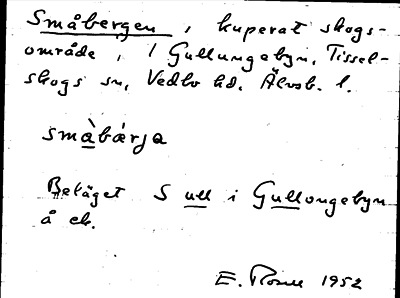 Småbergen, kuperat skogs-
område, i Gullungebyn, Tissel-
skogs sn, Vedbo hd. Älvsb. l.
småbærja
Beläget S ull i Gullongebyn
å ek.
E. Rosell 1952